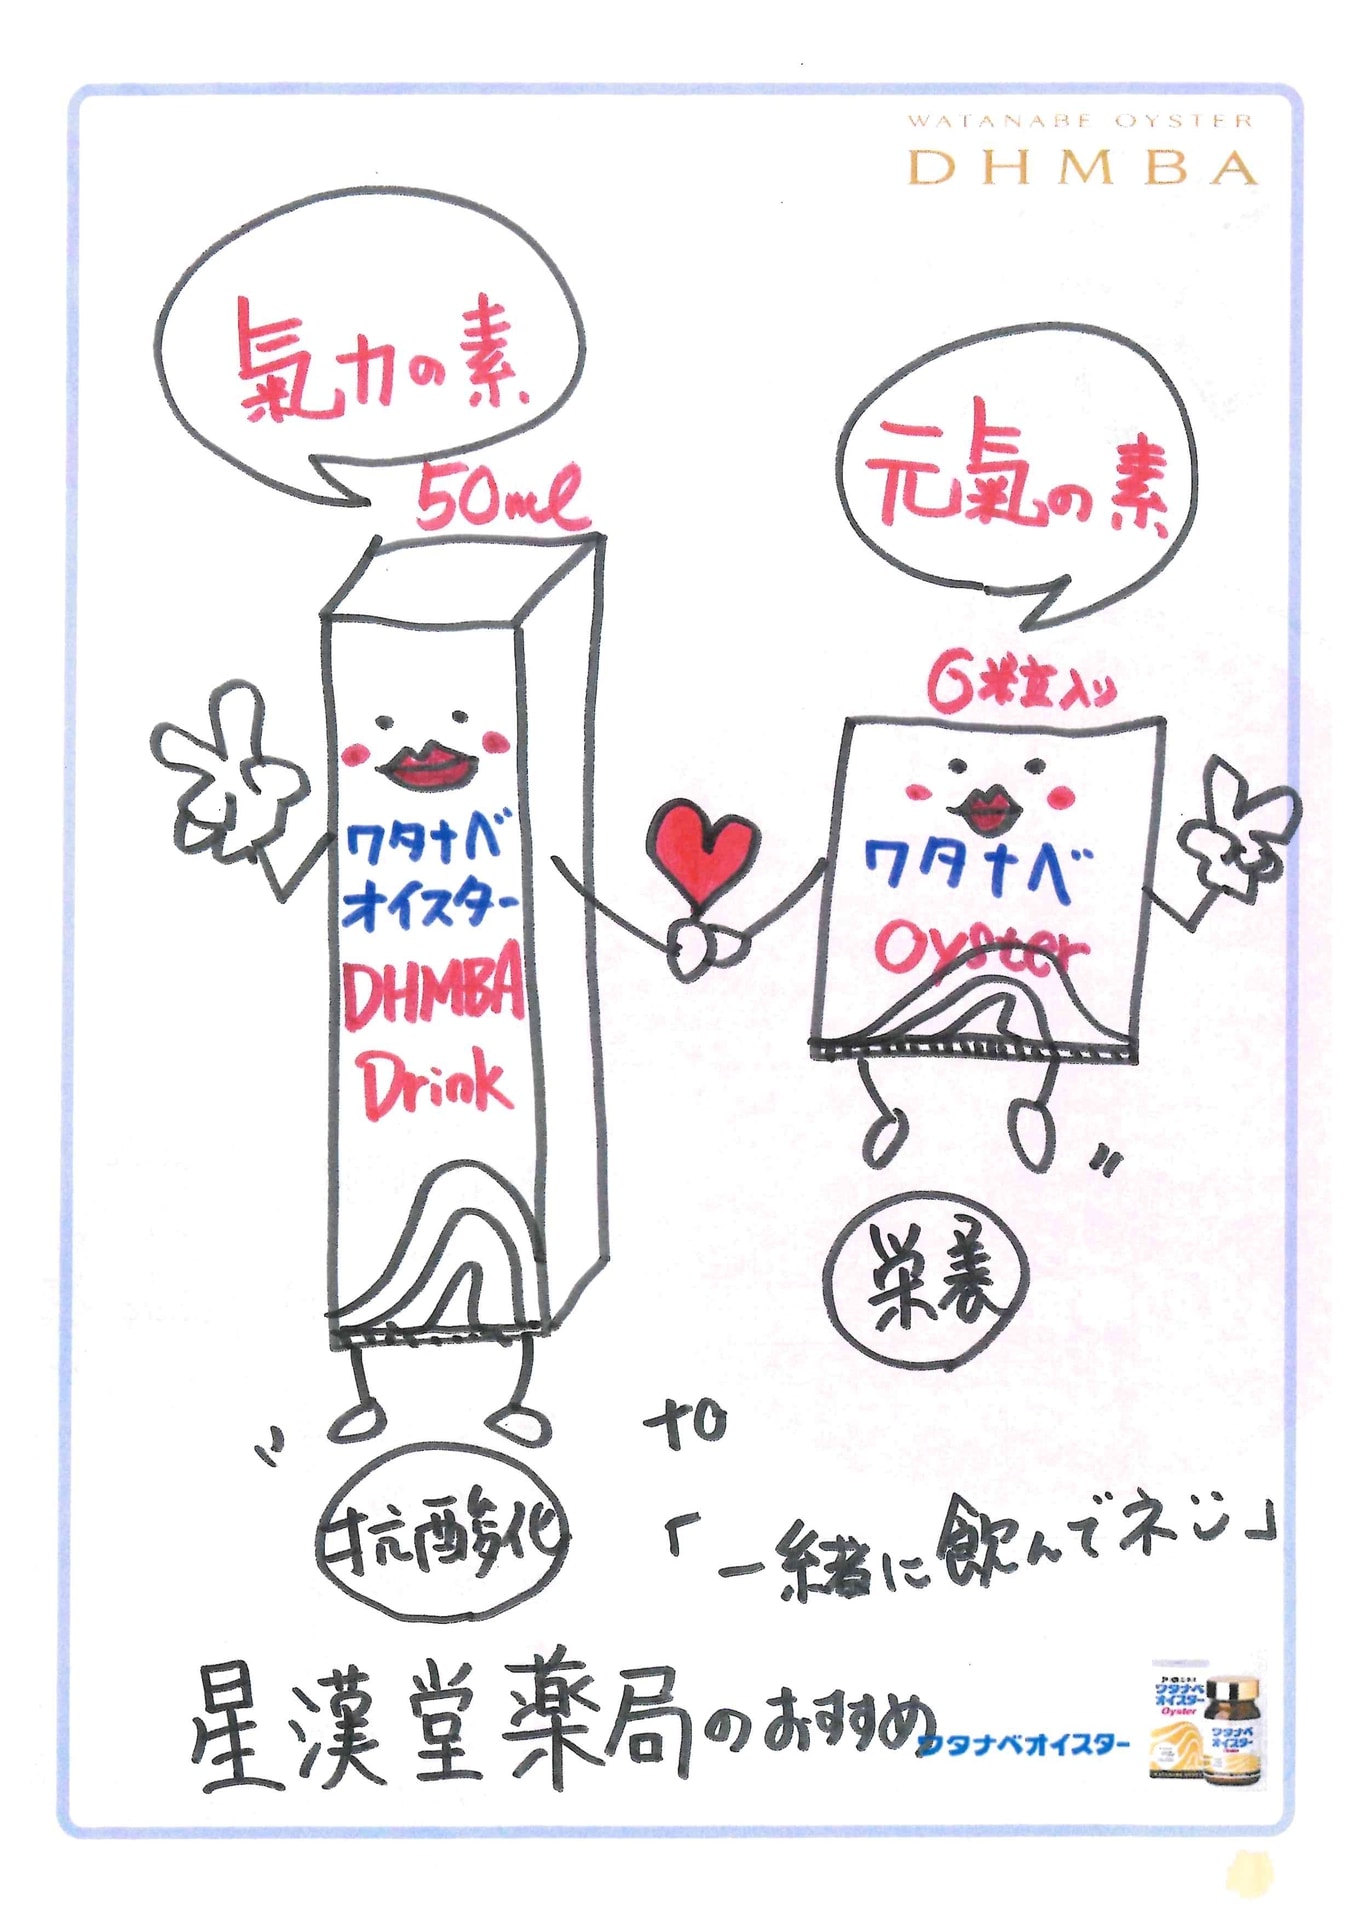 WATANABE OYSTER
DHMBA
氣力の素
元氣の素
50ml
6粒入り
ワタナベ
オイスター
DHMBA
Drink
ワタナベ
Oyster
栄養
抗酸化
to
「一緒に飲んでネ」
星漢堂薬局のおすすめ
ワタナベオイスター
ワタナベ
オイスター
Oyster
ワタナベ
オイスター